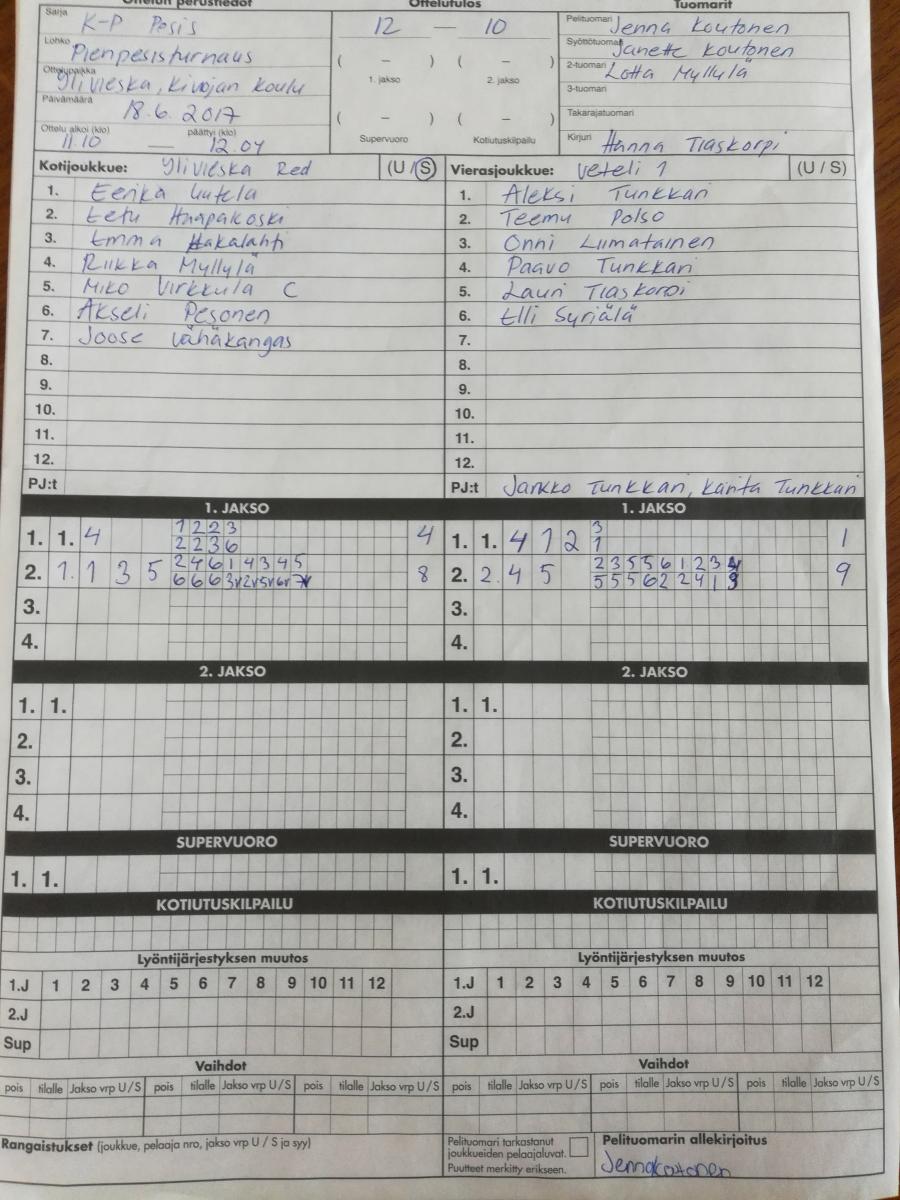 Ottelun perustiedot
Ottelutulos
Tuomarit
Sarja K-P Pesis
Lohko Pienpesisturnaus
Ottelupaikka Ylivieska, Kivojan Koulu
Päivämäärä 18.6.2017
Ottelu alkoi (klo) 11.10 — päättyi (klo) 12.04
12 — 10
( – ) ( – )
1. jakso 2. jakso
( – ) ( – )
Supervuoro Kotiutuskilpailu
Pelituomari Jenna Koutonen
Syöttötuomari Janette Koutonen
2-tuomari Lotta Myllylä
3-tuomari
Takarajatuomari
Kirjuri Hanna Tiaskorpi
Kotijoukkue: Ylivieska Red (U / S)
1. Eerika
2. Eetu Haapakoski
3. Emma Hakalahti
4. Riikka Myllylä
5. Miko Virkkula C
6. Akseli Pesonen
7. Joose Vähäkangas
8.
9.
10.
11.
12.
PJ:t
Vierasjoukkue: Veteli 1 (U / S)
1. Aleksi Tunkkari
2. Teemu Polso
3. Onni Liimatainen
4. Paavo Tunkkari
5. Lauri Tiaskorpi
6. Elli Syrjälä
7.
8.
9.
10.
11.
12.
PJ:t Jarkko Tunkkari, Karita Tunkkari
1. JAKSO
1. 1. 4 1 2 2 3 4
2 2 3 6
2. 1. 1 3 5 2 4 6 1 4 3 4 5 8
6 6 6 3v 2v 5v 6v 7v
3.
4.
1. JAKSO
1. 1. 4 1 2 3 1
1
2. 2. 4 5 2 3 5 5 6 1 2 3 4 9
5 5 5 6 2 2 4 1 3
3.
4.
2. JAKSO
1. 1.
2.
3.
4.
2. JAKSO
1. 1.
2.
3.
4.
SUPERVUORO
1. 1.
SUPERVUORO
1. 1.
KOTIUTUSKILPAILU
KOTIUTUSKILPAILU
Lyöntijärjestyksen muutos
1.J 1 2 3 4 5 6 7 8 9 10 11 12
2.J
Sup
Lyöntijärjestyksen muutos
1.J 1 2 3 4 5 6 7 8 9 10 11 12
2.J
Sup
Vaihdot
pois tilalle Jakso vrp U/S pois tilalle Jakso vrp U/S pois tilalle Jakso vrp U/S
Vaihdot
pois tilalle Jakso vrp U/S pois tilalle Jakso vrp U/S pois tilalle Jakso vrp U/S
Rangaistukset (joukkue, pelaaja nro, jakso vrp U / S ja syy)
Pelituomari tarkastanut
joukkueiden pelaajaluvat.
Puutteet merkitty erikseen.
Pelituomarin allekirjoitus
Jenna Koutonen